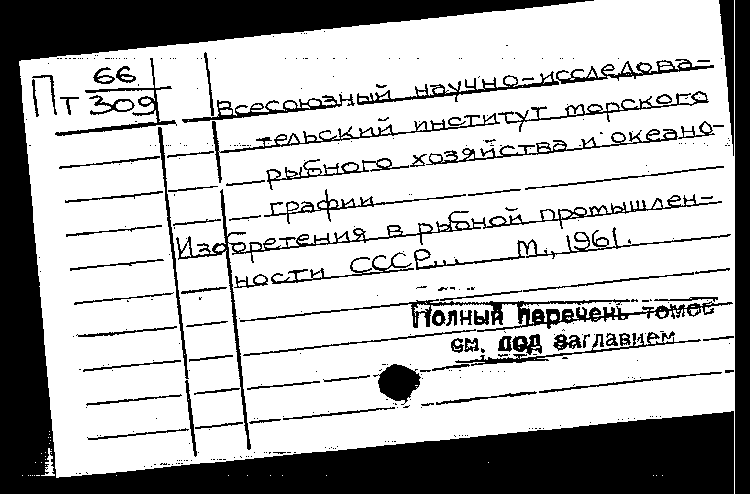 Пт 66/309
Всесоюзный научно-исследова-
тельский институт морского
рыбного хозяйства и океано-
графии
Изобретения в рыбной промышлен-
ности СССР... М., 1961.
Полный перечень томов
см. под заглавием